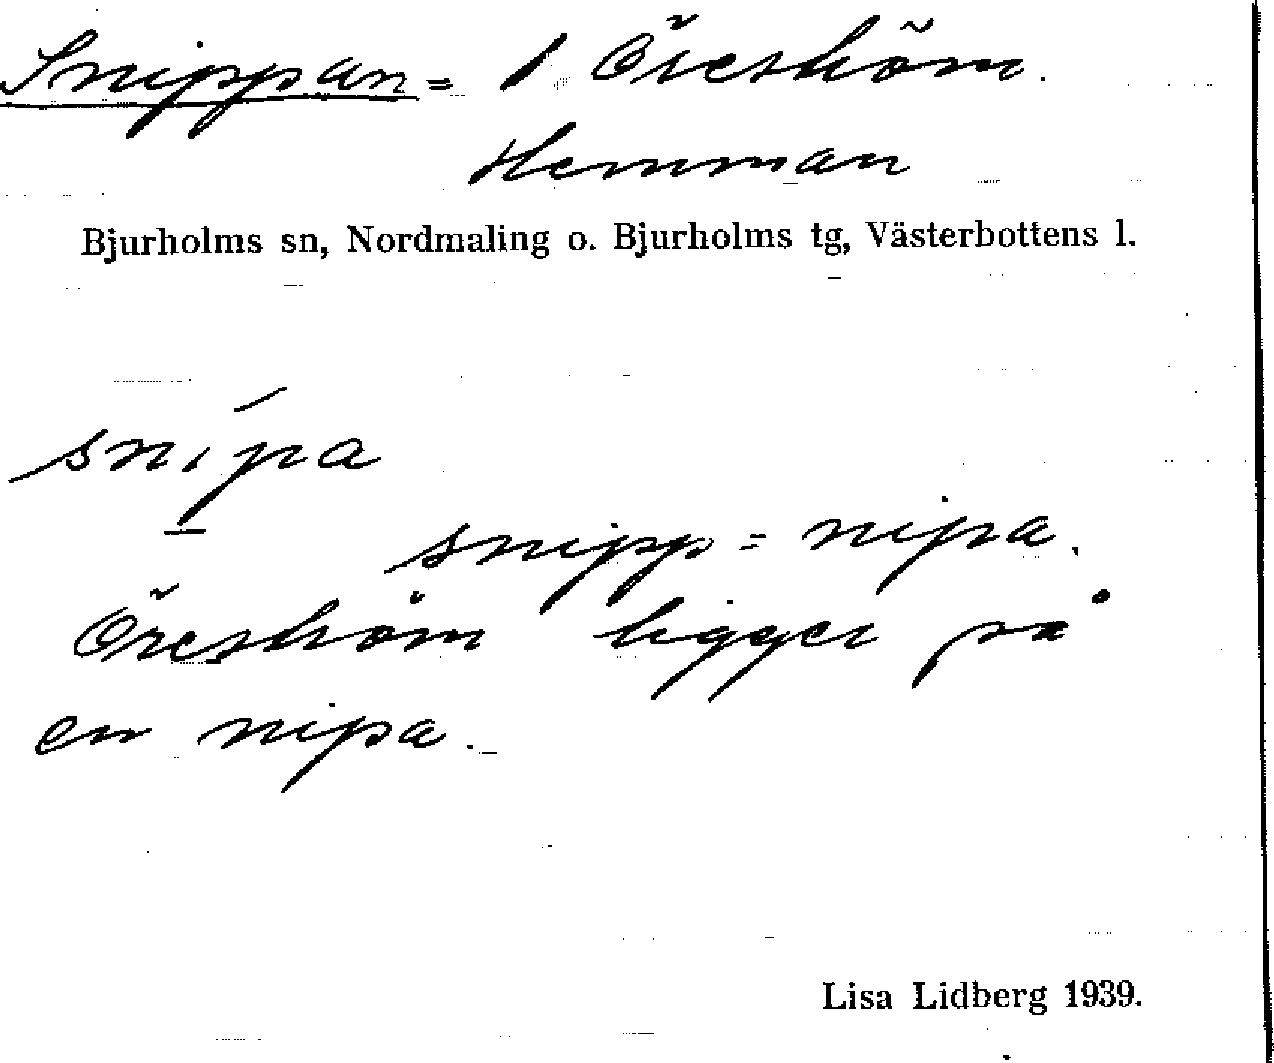 Snippan = 1 Öreström.
Hemman
Bjurholms sn, Nordmaling o. Bjurholms tg, Västerbottens l.
snípa
snipp = nipa.
Öreström ligger på
en nipa.
Lisa Lidberg 1939.